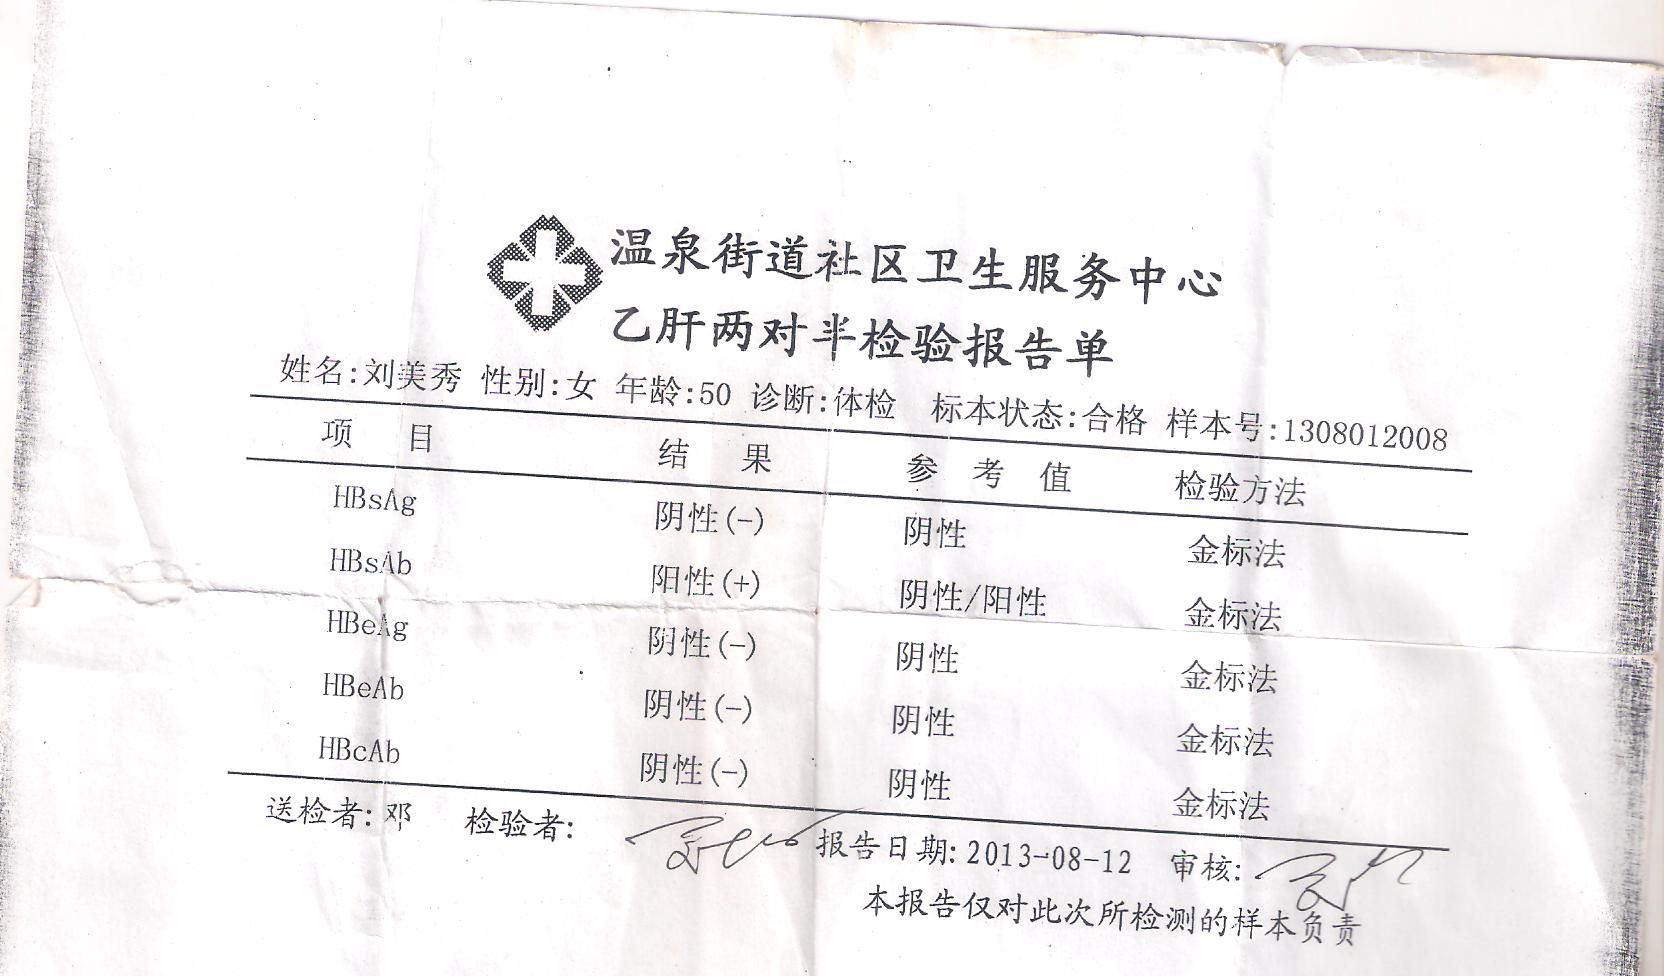 温泉街道社区卫生服务中心
乙肝两对半检验报告单
姓名:刘美秀 性别:女 年龄:50 诊断:体检 标本状态:合格 样本号:1308012008
项 目 结 果 参 考 值 检验方法
HBsAg 阴性(-) 阴性 金标法
HBsAb 阳性(+) 阴性/阳性 金标法
HBeAg 阴性(-) 阴性 金标法
HBeAb 阴性(-) 阴性 金标法
HBcAb 阴性(-) 阴性 金标法
送检者:邓 检验者: 报告日期:2013-08-12 审核:
本报告仅对此次所检测的样本负责